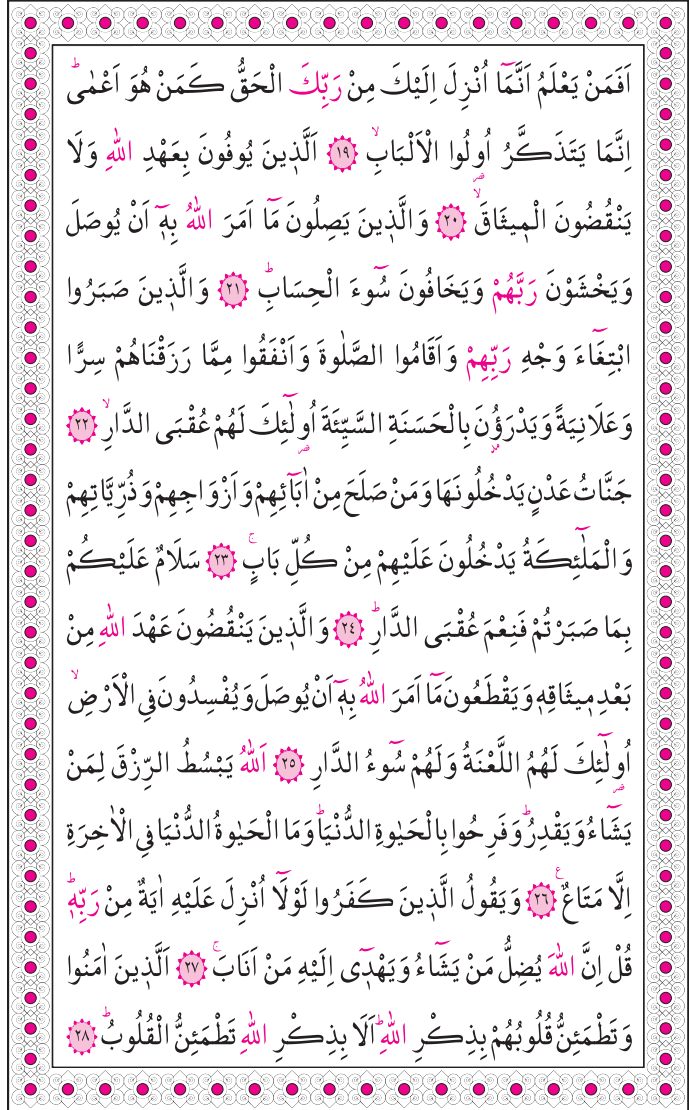 اَفَمَنْ يَعْلَمُ اَنَّمَٓا اُنْزِلَ اِلَيْكَ مِنْ رَبِّكَ الْحَقُّ كَمَنْ هُوَ اَعْمٰىۜ
اِنَّمَا يَتَذَكَّرُ اُو۬لُوا الْاَلْبَابِۙ ﴿١٩﴾ اَلَّذ۪ينَ يُوفُونَ بِعَهْدِ اللّٰهِ وَلَا
يَنْقُضُونَ الْم۪يثَاقَۙ ﴿٢٠﴾ وَالَّذ۪ينَ يَصِلُونَ مَٓا اَمَرَ اللّٰهُ بِه۪ٓ اَنْ يُوصَلَ
وَيَخْشَوْنَ رَبَّهُمْ وَيَخَافُونَ سُٓوءَ الْحِسَابِۜ ﴿٢١﴾ وَالَّذ۪ينَ صَبَرُوا
ابْتِغَٓاءَ وَجْهِ رَبِّهِمْ وَاَقَامُوا الصَّلٰوةَ وَاَنْفَقُوا مِمَّا رَزَقْنَاهُمْ سِرًّا
وَعَلَانِيَةً وَيَدْرَؤُ۫نَ بِالْحَسَنَةِ السَّيِّئَةَ اُو۬لٰٓئِكَ لَهُمْ عُقْبَى الدَّارِۙ ﴿٢٢﴾
جَنَّاتُ عَدْنٍ يَدْخُلُونَهَا وَمَنْ صَلَحَ مِنْ اٰبَٓائِهِمْ وَاَزْوَاجِهِمْ وَذُرِّيَّاتِهِمْ
وَالْمَلٰٓئِكَةُ يَدْخُلُونَ عَلَيْهِمْ مِنْ كُلِّ بَابٍۚ ﴿٢٣﴾ سَلَامٌ عَلَيْكُمْ
بِمَا صَبَرْتُمْ فَنِعْمَ عُقْبَى الدَّارِۜ ﴿٢٤﴾ وَالَّذ۪ينَ يَنْقُضُونَ عَهْدَ اللّٰهِ مِنْ
بَعْدِ م۪يثَاقِه۪ وَيَقْطَعُونَ مَٓا اَمَرَ اللّٰهُ بِه۪ٓ اَنْ يُوصَلَ وَيُفْسِدُونَ فِي الْاَرْضِۙ
اُو۬لٰٓئِكَ لَهُمُ اللَّعْنَةُ وَلَهُمْ سُٓوءُ الدَّارِ ﴿٢٥﴾ اَللّٰهُ يَبْسُطُ الرِّزْقَ لِمَنْ
يَشَٓاءُ وَيَقْدِرُۜ وَفَرِحُوا بِالْحَيٰوةِ الدُّنْيَاۜ وَمَا الْحَيٰوةُ الدُّنْيَا فِي الْاٰخِرَةِ
اِلَّا مَتَاعٌ۟ ﴿٢٦﴾ وَيَقُولُ الَّذ۪ينَ كَفَرُوا لَوْلَٓا اُنْزِلَ عَلَيْهِ اٰيَةٌ مِنْ رَبِّه۪ۜ
قُلْ اِنَّ اللّٰهَ يُضِلُّ مَنْ يَشَٓاءُ وَيَهْد۪ٓي اِلَيْهِ مَنْ اَنَابَۚ ﴿٢٧﴾ اَلَّذ۪ينَ اٰمَنُوا
وَتَطْمَئِنُّ قُلُوبُهُمْ بِذِكْرِ اللّٰهِۜ اَلَا بِذِكْرِ اللّٰهِ تَطْمَئِنُّ الْقُلُوبُۜ ﴿٢٨﴾